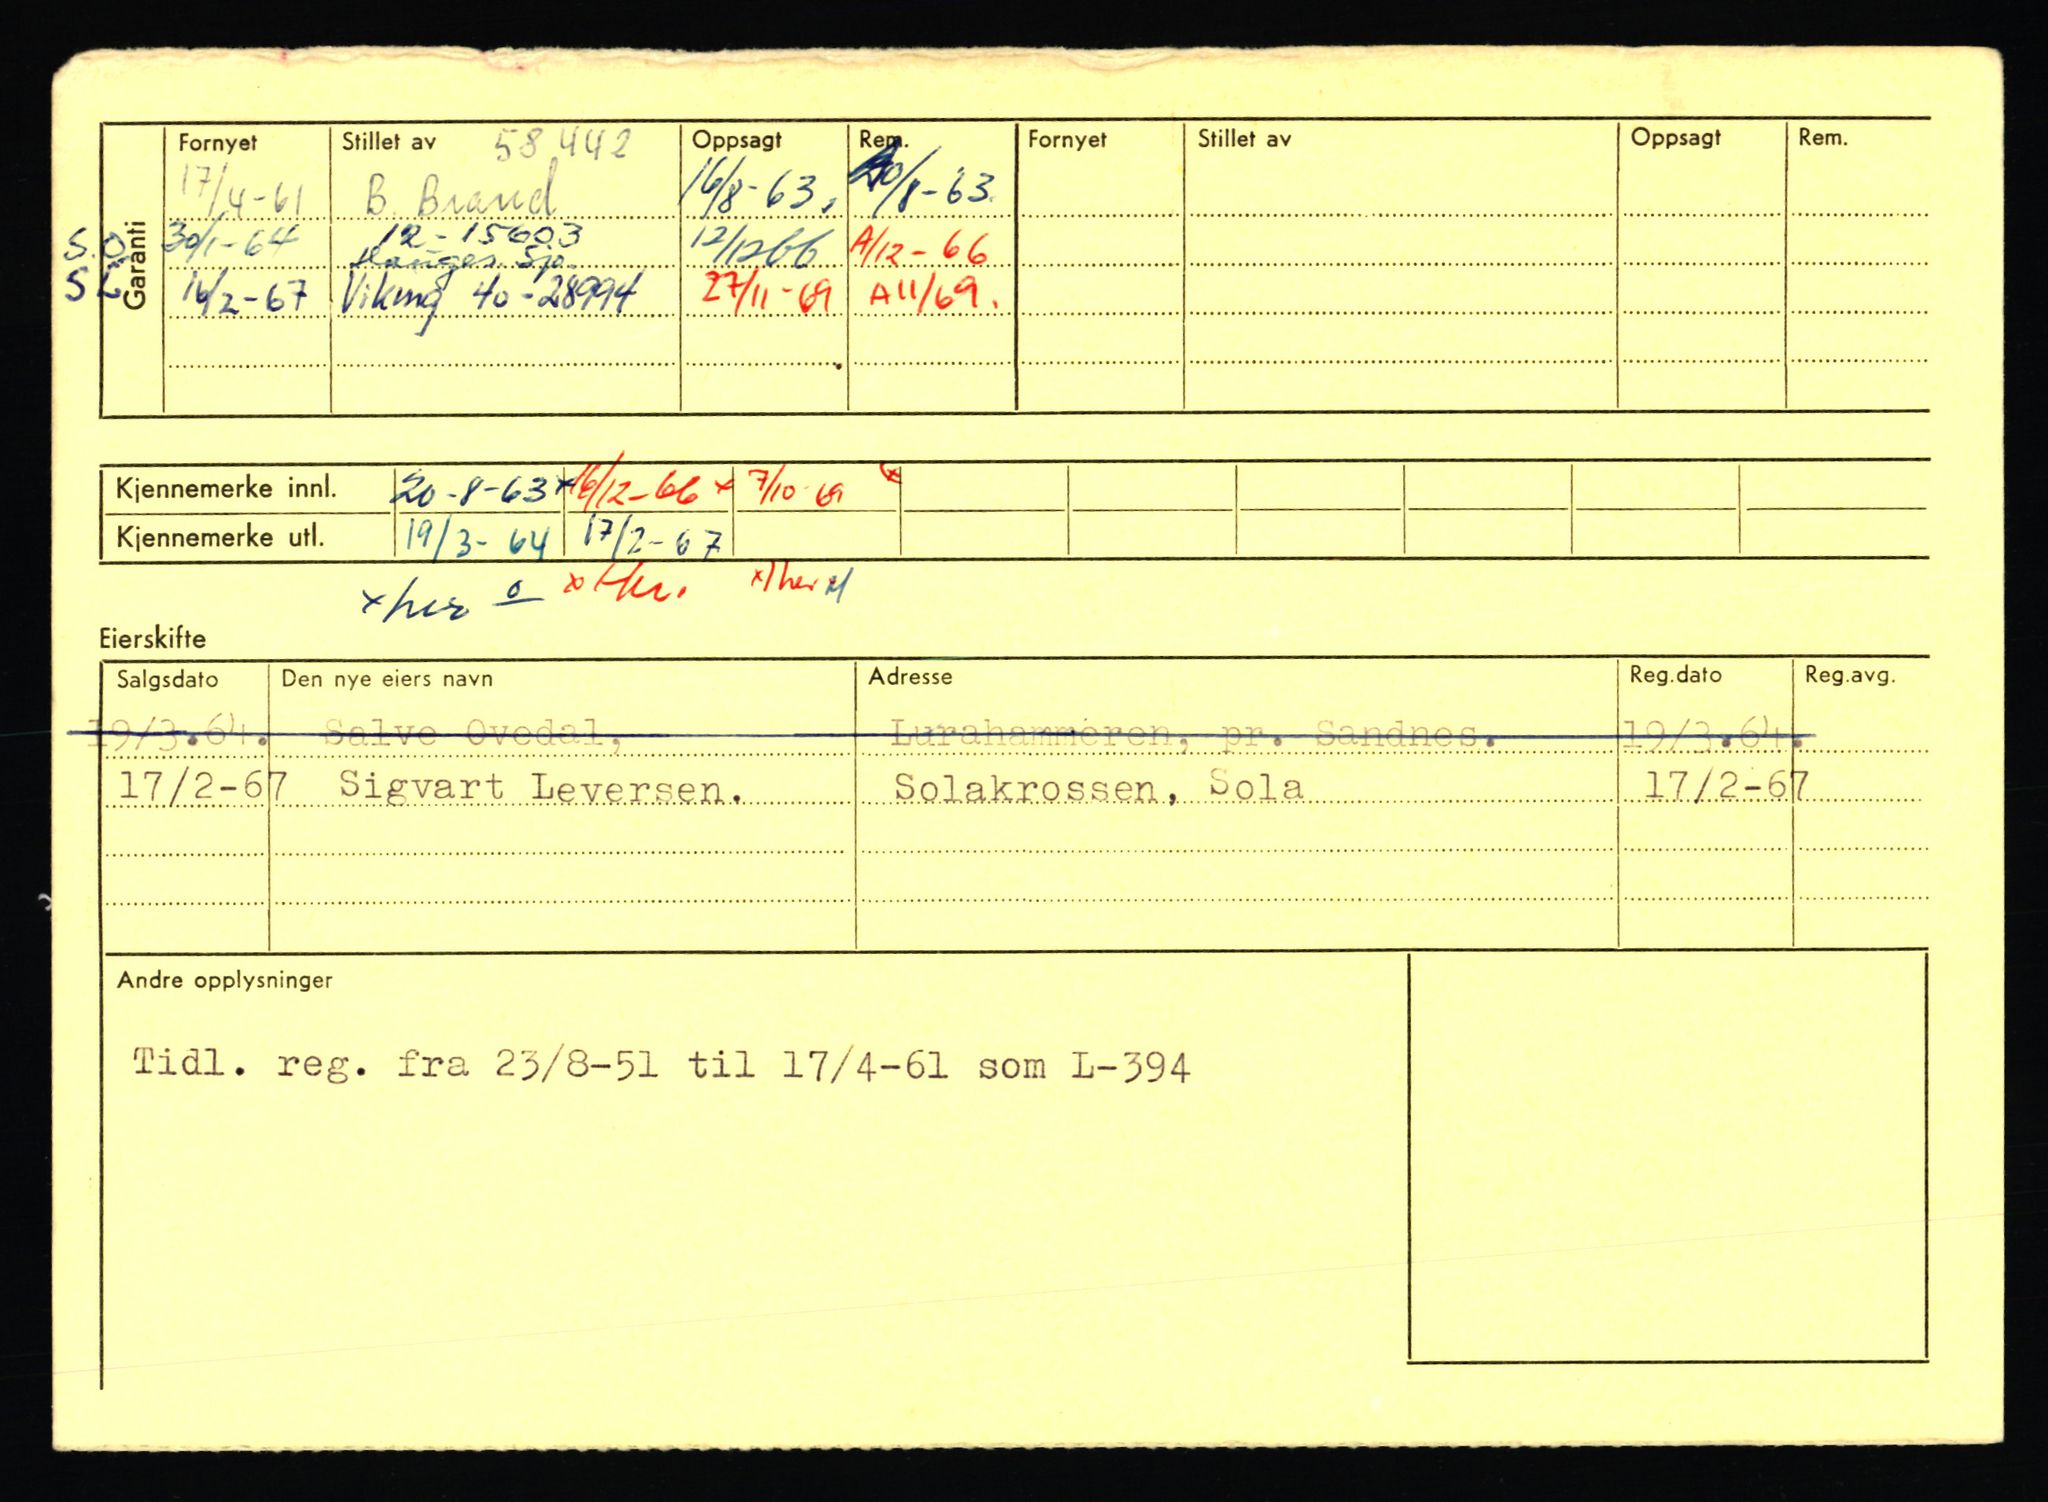 Fornyet Stillet av 58442 Oppsagt Rem. Fornyet Stillet av Oppsagt Rem.
Garanti
17/4-61 B. Brand 16/8-63, 20/8-63.
S.O 30/1-64 12-15603 12/12 66 A/12-66
Sp.
S L 16/2-67 Viking 40-28994 27/11-69 A11/69.
Kjennemerke innl. 20-8-63 x 16/12-66 x 7/10-69 x
Kjennemerke utl. 19/3-64 17/2-67
x her x her. x her
Eierskifte
Salgsdato Den nye eiers navn Adresse Reg.dato Reg.avg.
19/3.64. Salve Ovedal, Lurahammeren, pr. Sandnes. 19/3.64.
17/2-67 Sigvart Leversen. Solakrossen, Sola 17/2-67
Andre opplysninger
Tidl. reg. fra 23/8-51 til 17/4-61 som L-394